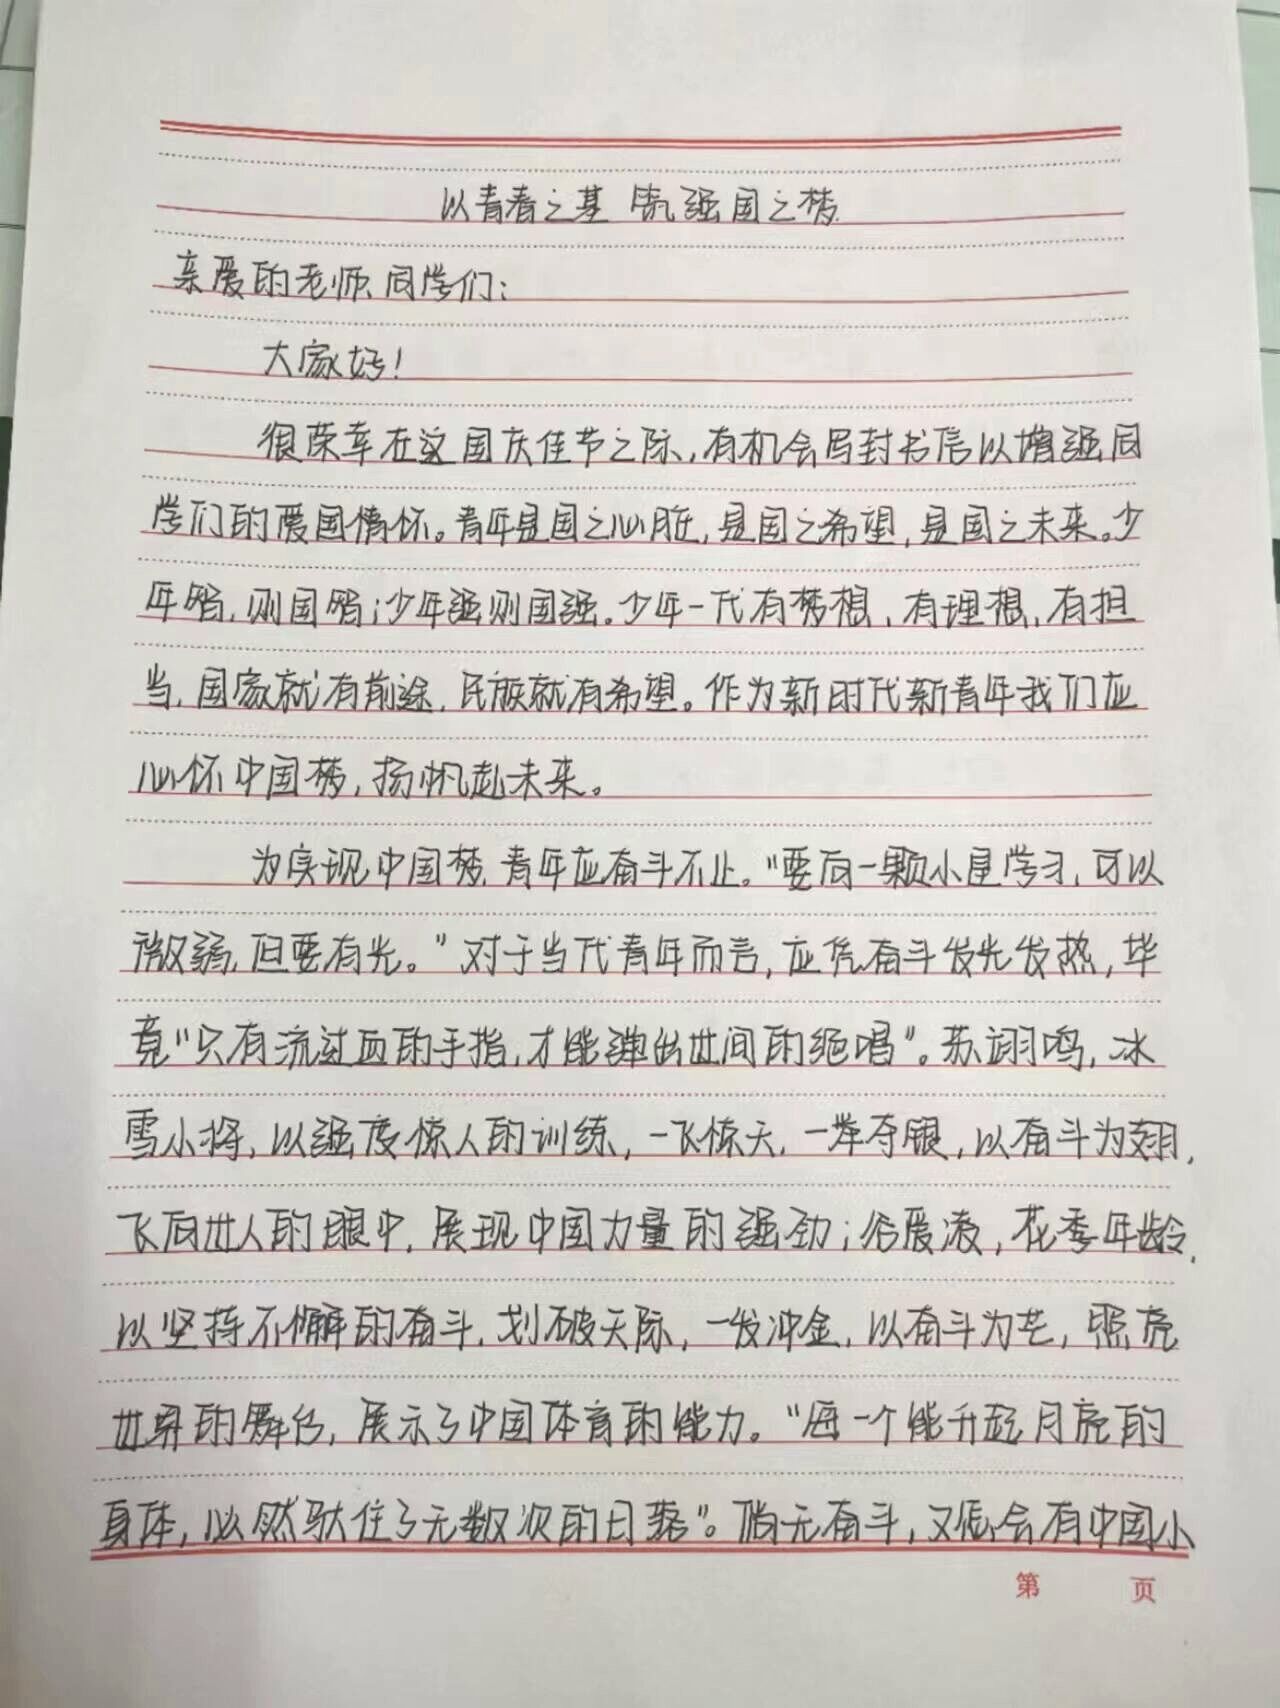 以青春之基 筑强国之梦
亲爱的老师、同学们：
大家好！
很荣幸在这国庆佳节之际，有机会写封书信以增强同
学们的爱国情怀。青年是国之心脏，是国之希望，是国之未来。少
年智，则国智；少年强则国强。少年一代有梦想、有理想、有担
当，国家就有前途，民族就有希望。作为新时代新青年我们应
心怀中国梦，扬帆赴未来。
为实现中国梦，青年应奋斗不止。“要向一颗小星学习，可以
微弱，但要有光。”对于当代青年而言，应凭奋斗发光发热，毕
竟“只有流过血的手指，才能弹出世间的绝唱”。苏翊鸣，冰
雪小将，以强度惊人的训练，一飞惊天，一举夺银，以奋斗为翅，
飞向世人的眼中，展现中国力量的强劲；谷爱凌，花季年龄，
以坚持不懈的奋斗，划破天际，一发冲金，以奋斗为芒，照亮
世界的舞台，展示了中国体育的能力。“每一个能升起月亮的
身体，必然驮住了无数次的日落”。倘无奋斗，又怎会有中国小
第 页